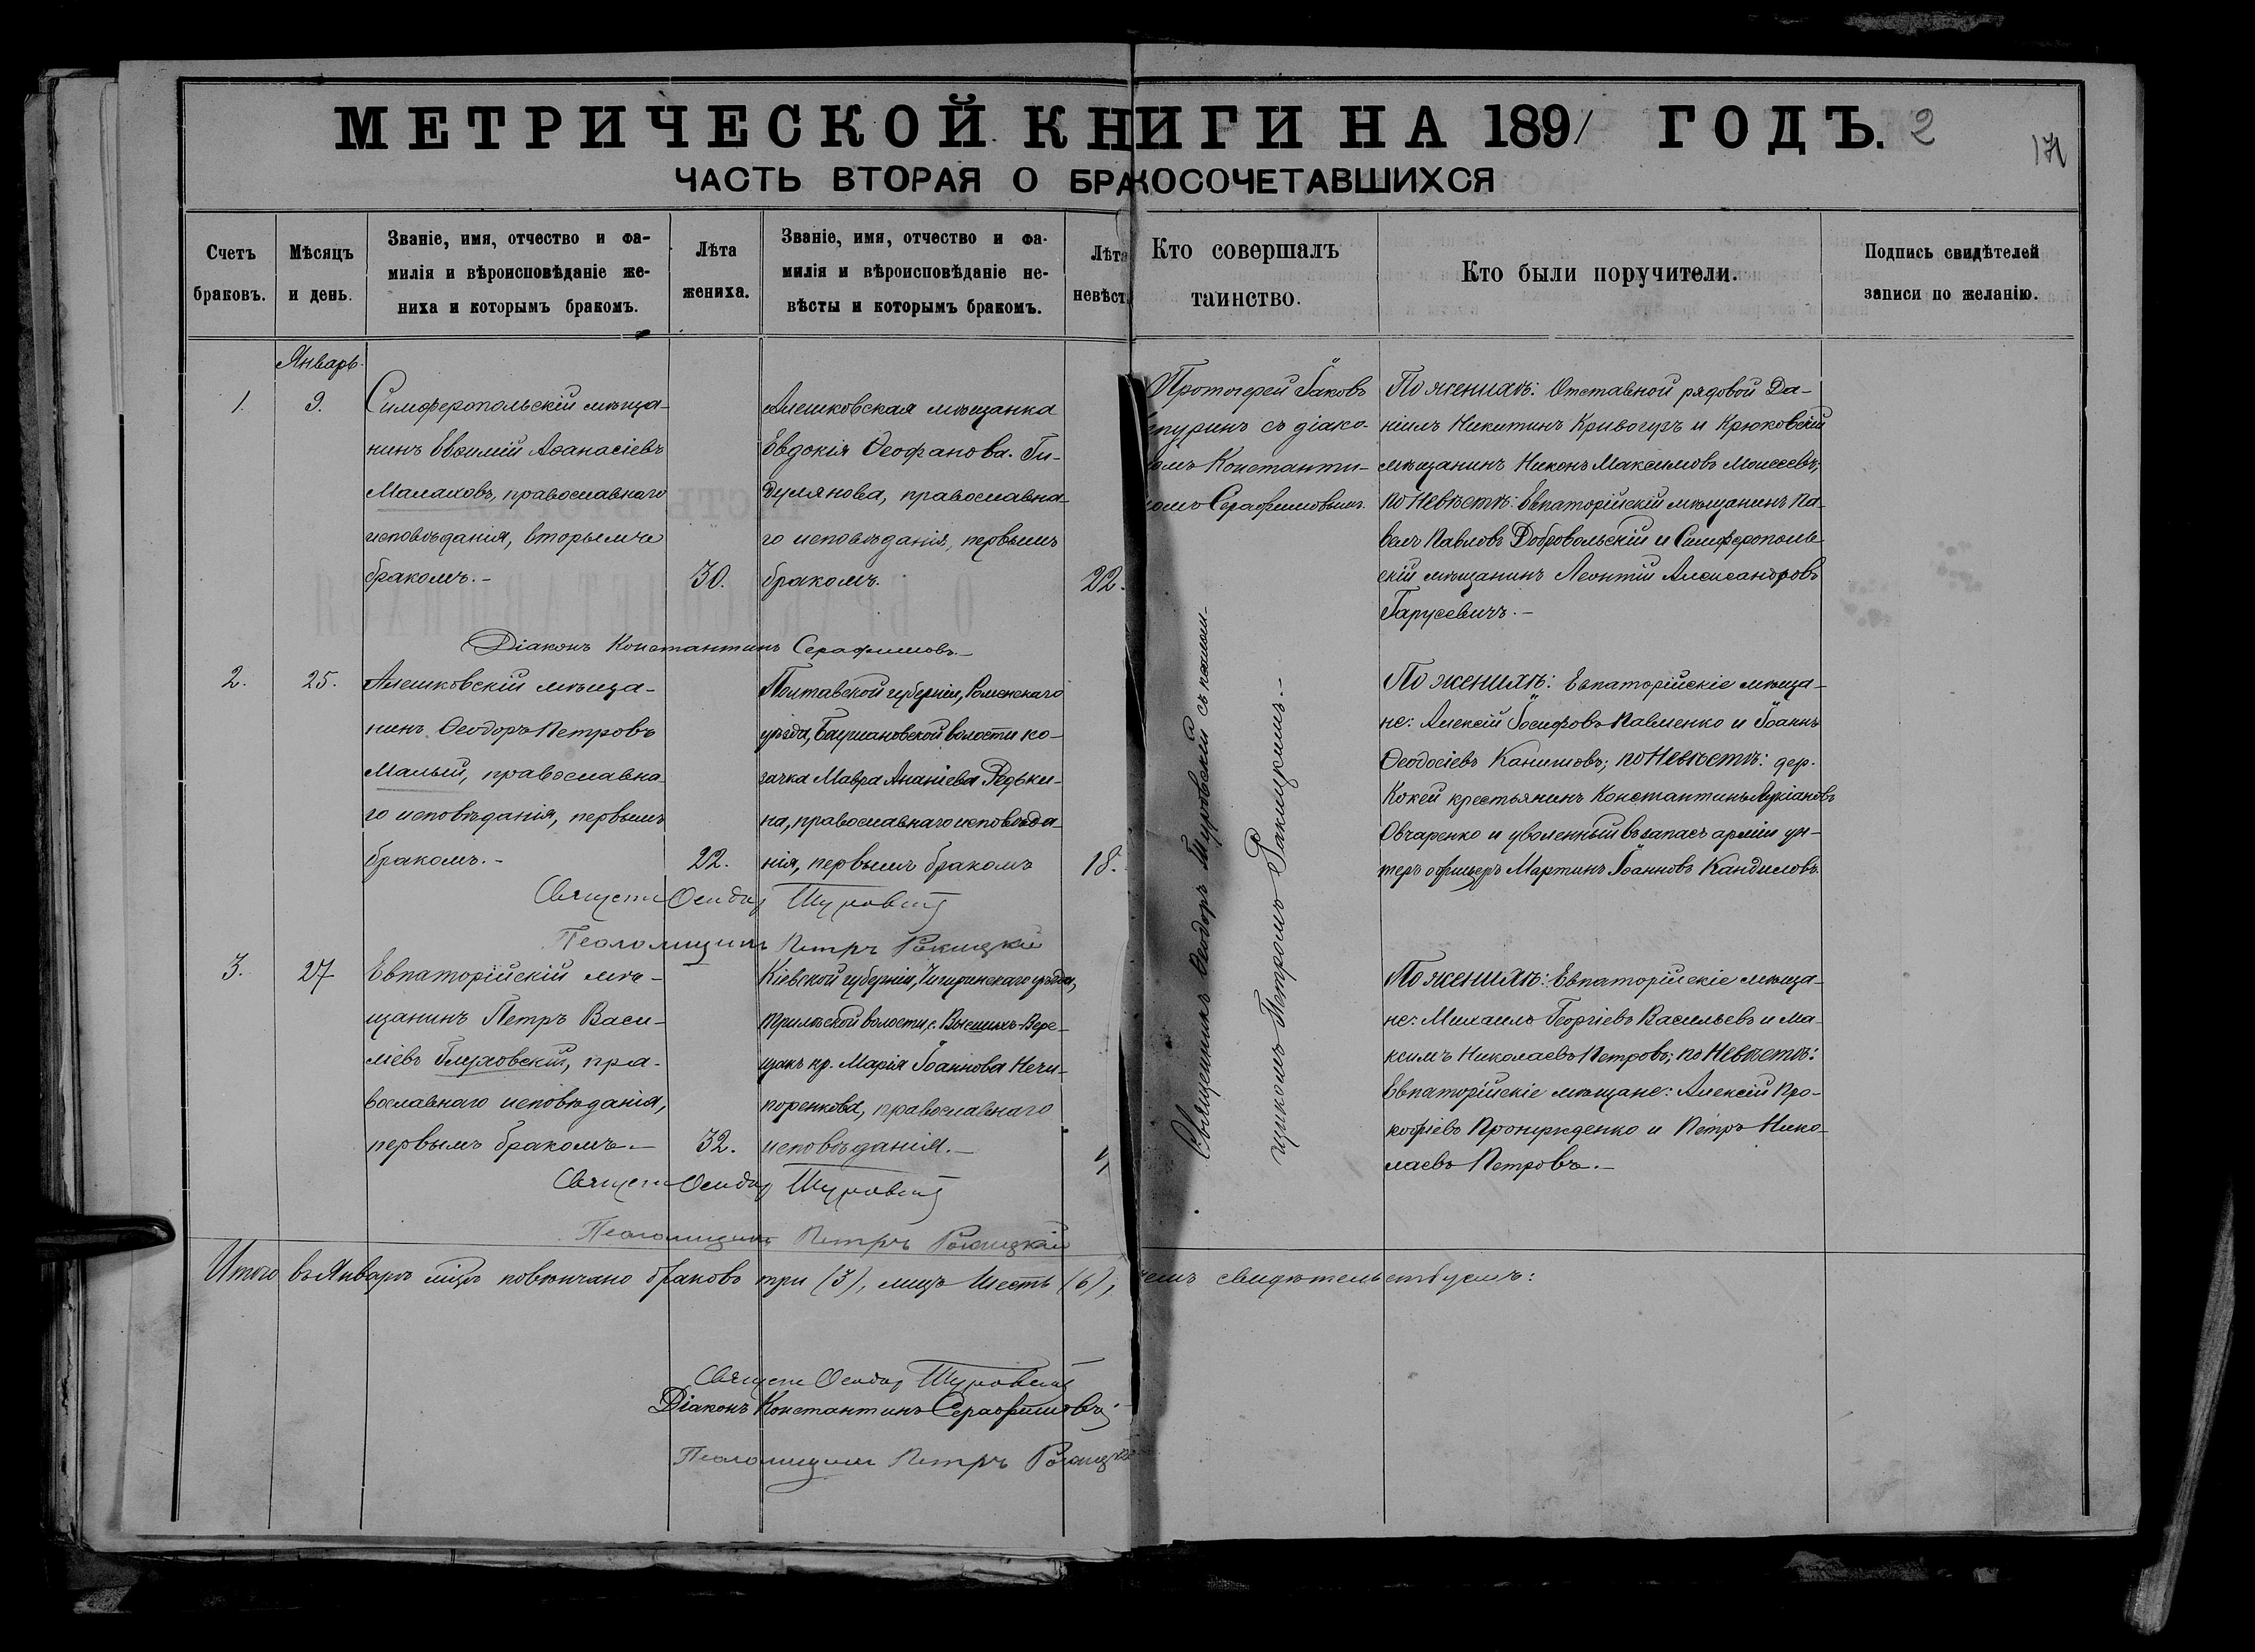 МЕТРИЧЕСКОЙ КНИГИ НА 1891 ГОДЪ.
2
171
ЧАСТЬ ВТОРАЯ О БРАКОСОЧЕТАВШИХСЯ
Счетъ
браковъ.
Мѣсяцъ
и день.
Званіе, имя, отчество и фа-
милія и вѣроисповѣданіе же-
ниха и которымъ бракомъ.
Лѣта
жениха.
Званіе, имя, отчество и фа-
милія и вѣроисповѣданіе не-
вѣсты и которымъ бракомъ.
Лѣта
невѣст
Кто совершалъ
таинство.
Кто были поручители.
Подпись свидѣтелей
записи по желанію.
Январь.
1.
9.
Симферопольскій мѣща-
нинъ Евѳимій Аѳанасіевъ
Малаховъ, православнаго
исповѣданія, вторымъ
бракомъ.-
30.
Алешковская мѣщанка
Евдокія Ѳеофанова Ги-
дулянова, православна-
го исповѣданія, первымъ
бракомъ.
22.
Протоіерей Іаковъ
пуринъ съ діако-
номъ Константи-
номъ Серафимовымъ.
По женихѣ: Отставной рядовой Да-
ніилъ Никитинъ Кривогузъ и Крюковскій
мѣщанинъ Никонъ Максимовъ Моисеевъ;
по Невѣстѣ: Евпаторійскій мѣщанинъ Па-
велъ Павловъ Добровольскій и Симферополь-
скій мѣщанинъ Леонтій Александровъ
Гарусевичъ.-
Діаконъ Константинъ Серафимовъ.-
2.
25.
Алешковскій мѣща-
нинъ Ѳеодоръ Петровъ
Малый, православна-
го исповѣданія, первымъ
бракомъ.-
22.
Полтавской губерніи, Роменскаго
уѣзда, волости ко-
зачка Мавра Ананіева Редьки-
на, православнаго исповѣда-
нія, первымъ бракомъ
18.
По женихѣ: Евпаторійскіе мѣща-
не: Алексій Іосифовъ Павленко и Іоаннъ
Ѳеодосіевъ Каниловъ; по Невѣстѣ: дер.
Кокей крестьянинъ Константинъ Лукіановъ
Овчаренко и уволенный въ запасъ арміи ун-
теръ офицеръ Мартинъ Іоанновъ Кандиловъ.
Священ Ѳеодор Шуровскій
Псаломщикъ Петръ Ракицкій
3.
27
Евпаторійскій мѣ-
щанинъ Петръ Васи-
ліевъ Глуховскій, пра-
вославнаго исповѣданія,
первымъ бракомъ.-
32.
Кіевской губерніи, Чигиринскаго уѣзда,
Трилѣской волости, с. Высшихъ-Вере-
щакъ кр. Марія Іоаннова Нечи-
поренкова, православнаго
исповѣданія.-
Священникъ Ѳеодоръ Шуровскій съ псалом-
щикомъ Петромъ Ракицкимъ.-
По женихѣ: Евпаторійскіе мѣща-
не: Михаилъ Георгіевъ Васильевъ и Ма-
ксимъ Николаевъ Петровъ; по Невѣстѣ:
Евпаторійскіе мѣщане: Алексій Про-
кофіевъ и Петръ Нико-
лаевъ Петровъ.-
Священ Ѳеодор Шуровскій
Псаломщикъ Петръ Ракицкій
Итого въ Январѣ мѣцѣ повѣнчано браковъ три (3), лицъ шесть (6), чемъ свидѣтельствуемъ:
Священ Ѳеодор Шуровскій
Діаконъ Константинъ Серафимовъ
Псаломщикъ Петръ Ракицкій